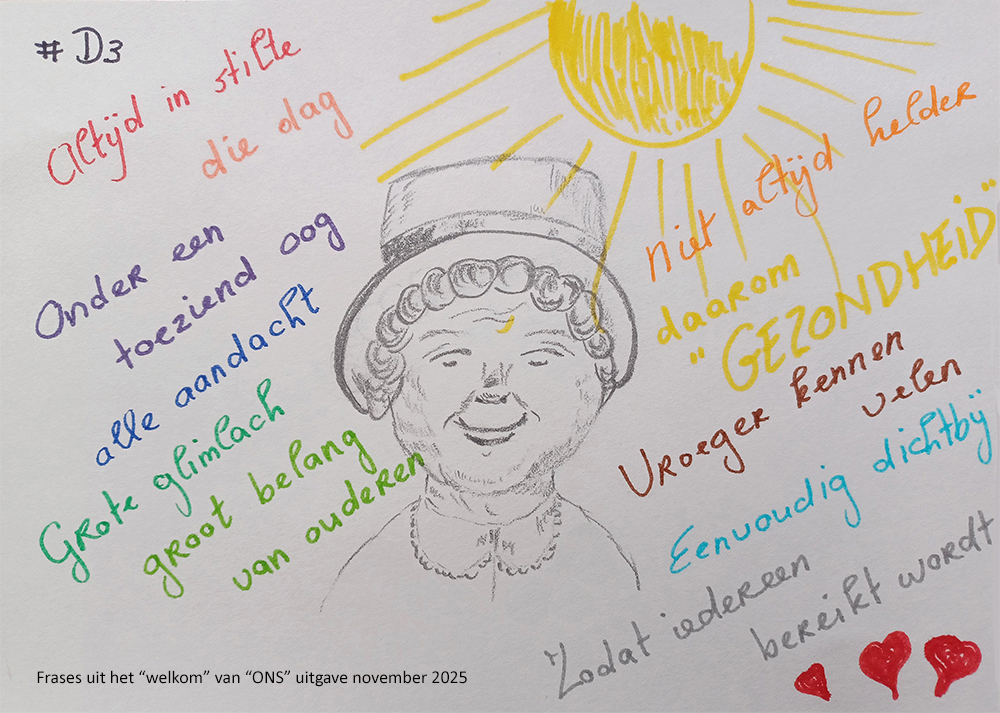 # D3
Altijd in stilte
die dag
Onder een
toeziend oog
alle aandacht
Grote glimlach
groot belang
van ouderen
niet altijd helder
daarom
"GEZONDHEID"
Vroeger kennen
velen
Eenvoudig dichtbij
Zodat iedereen
bereikt wordt
Frases uit het “welkom” van “ONS” uitgave november 2025